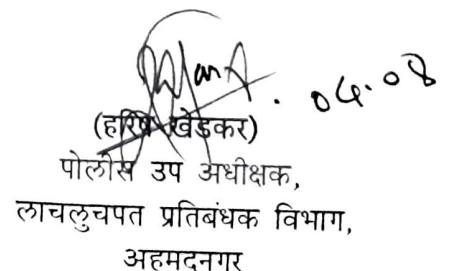 04.08
(हरिष खेडकर)
पोलीस उप अधीक्षक,
लाचलुचपत प्रतिबंधक विभाग,
अहमदनगर